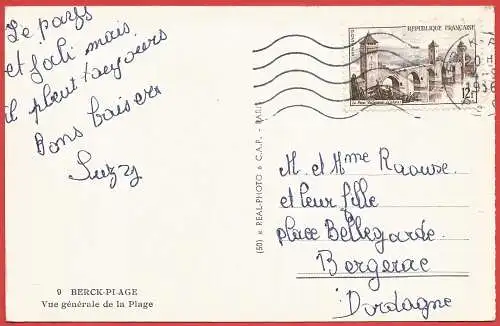 Le pays
et joli mais
il pleut toujours
Bons baisers
Suzy
9 BERCK-PLAGE
Vue générale de la Plage
(50) REAL-PHOTO C.A.P. - PARIS
RÉPUBLIQUE FRANÇAISE
12F
20H
1956
M. et Mme Raouse
et leur fille
place Bellegarde
Bergerac
Dordogne